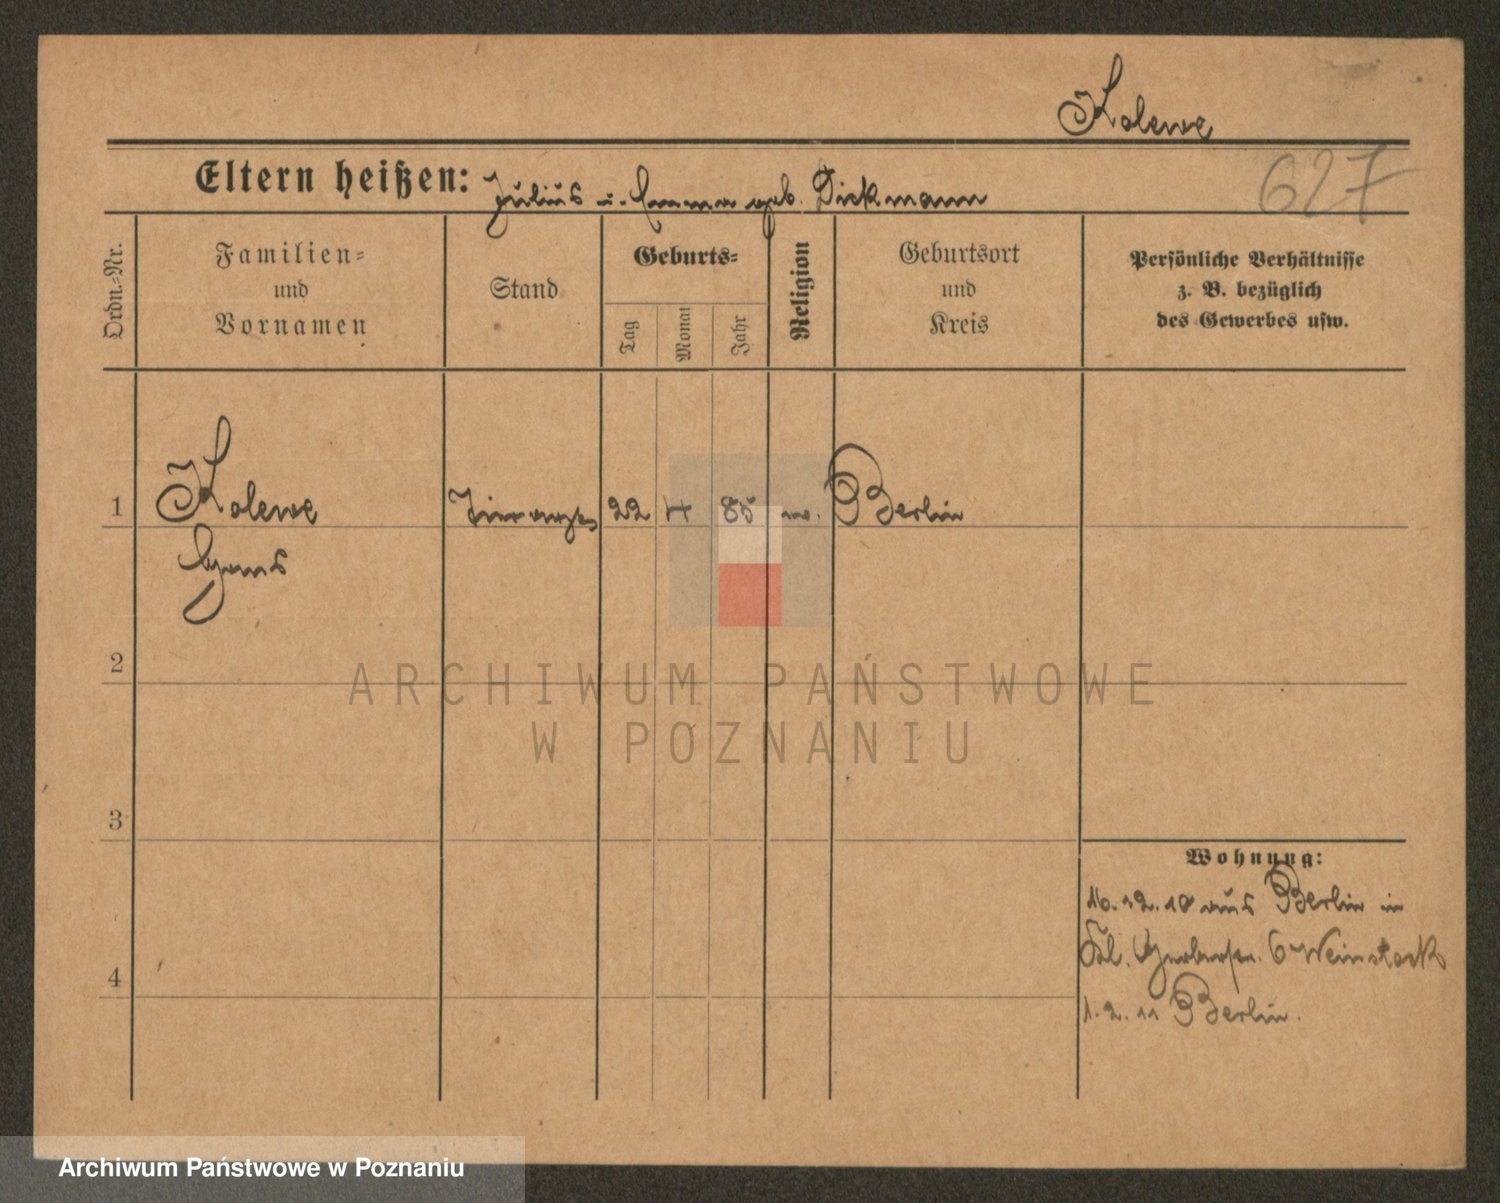 Kolewe
627
Eltern heißen: Julius u. Emma geb. Dickmann
Ordn.-Nr.
Familien- und Vornamen
Stand
Geburts-
Tag
Monat
Jahr
Religion
Geburtsort und Kreis
Persönliche Verhältnisse
z. B. bezüglich
des Gewerbes usw.
1 Kolewe 22 4 85 Berlin
2
ARCHIWUM PAŃSTWOWE
W POZNANIU
3
Wohnung:
16.12.10 aus Berlin in
6 Weinstock
4
1.2.11 Berlin.
Archiwum Państwowe w Poznaniu